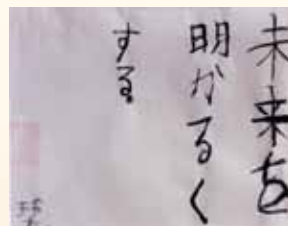 未来を
明かるく
する